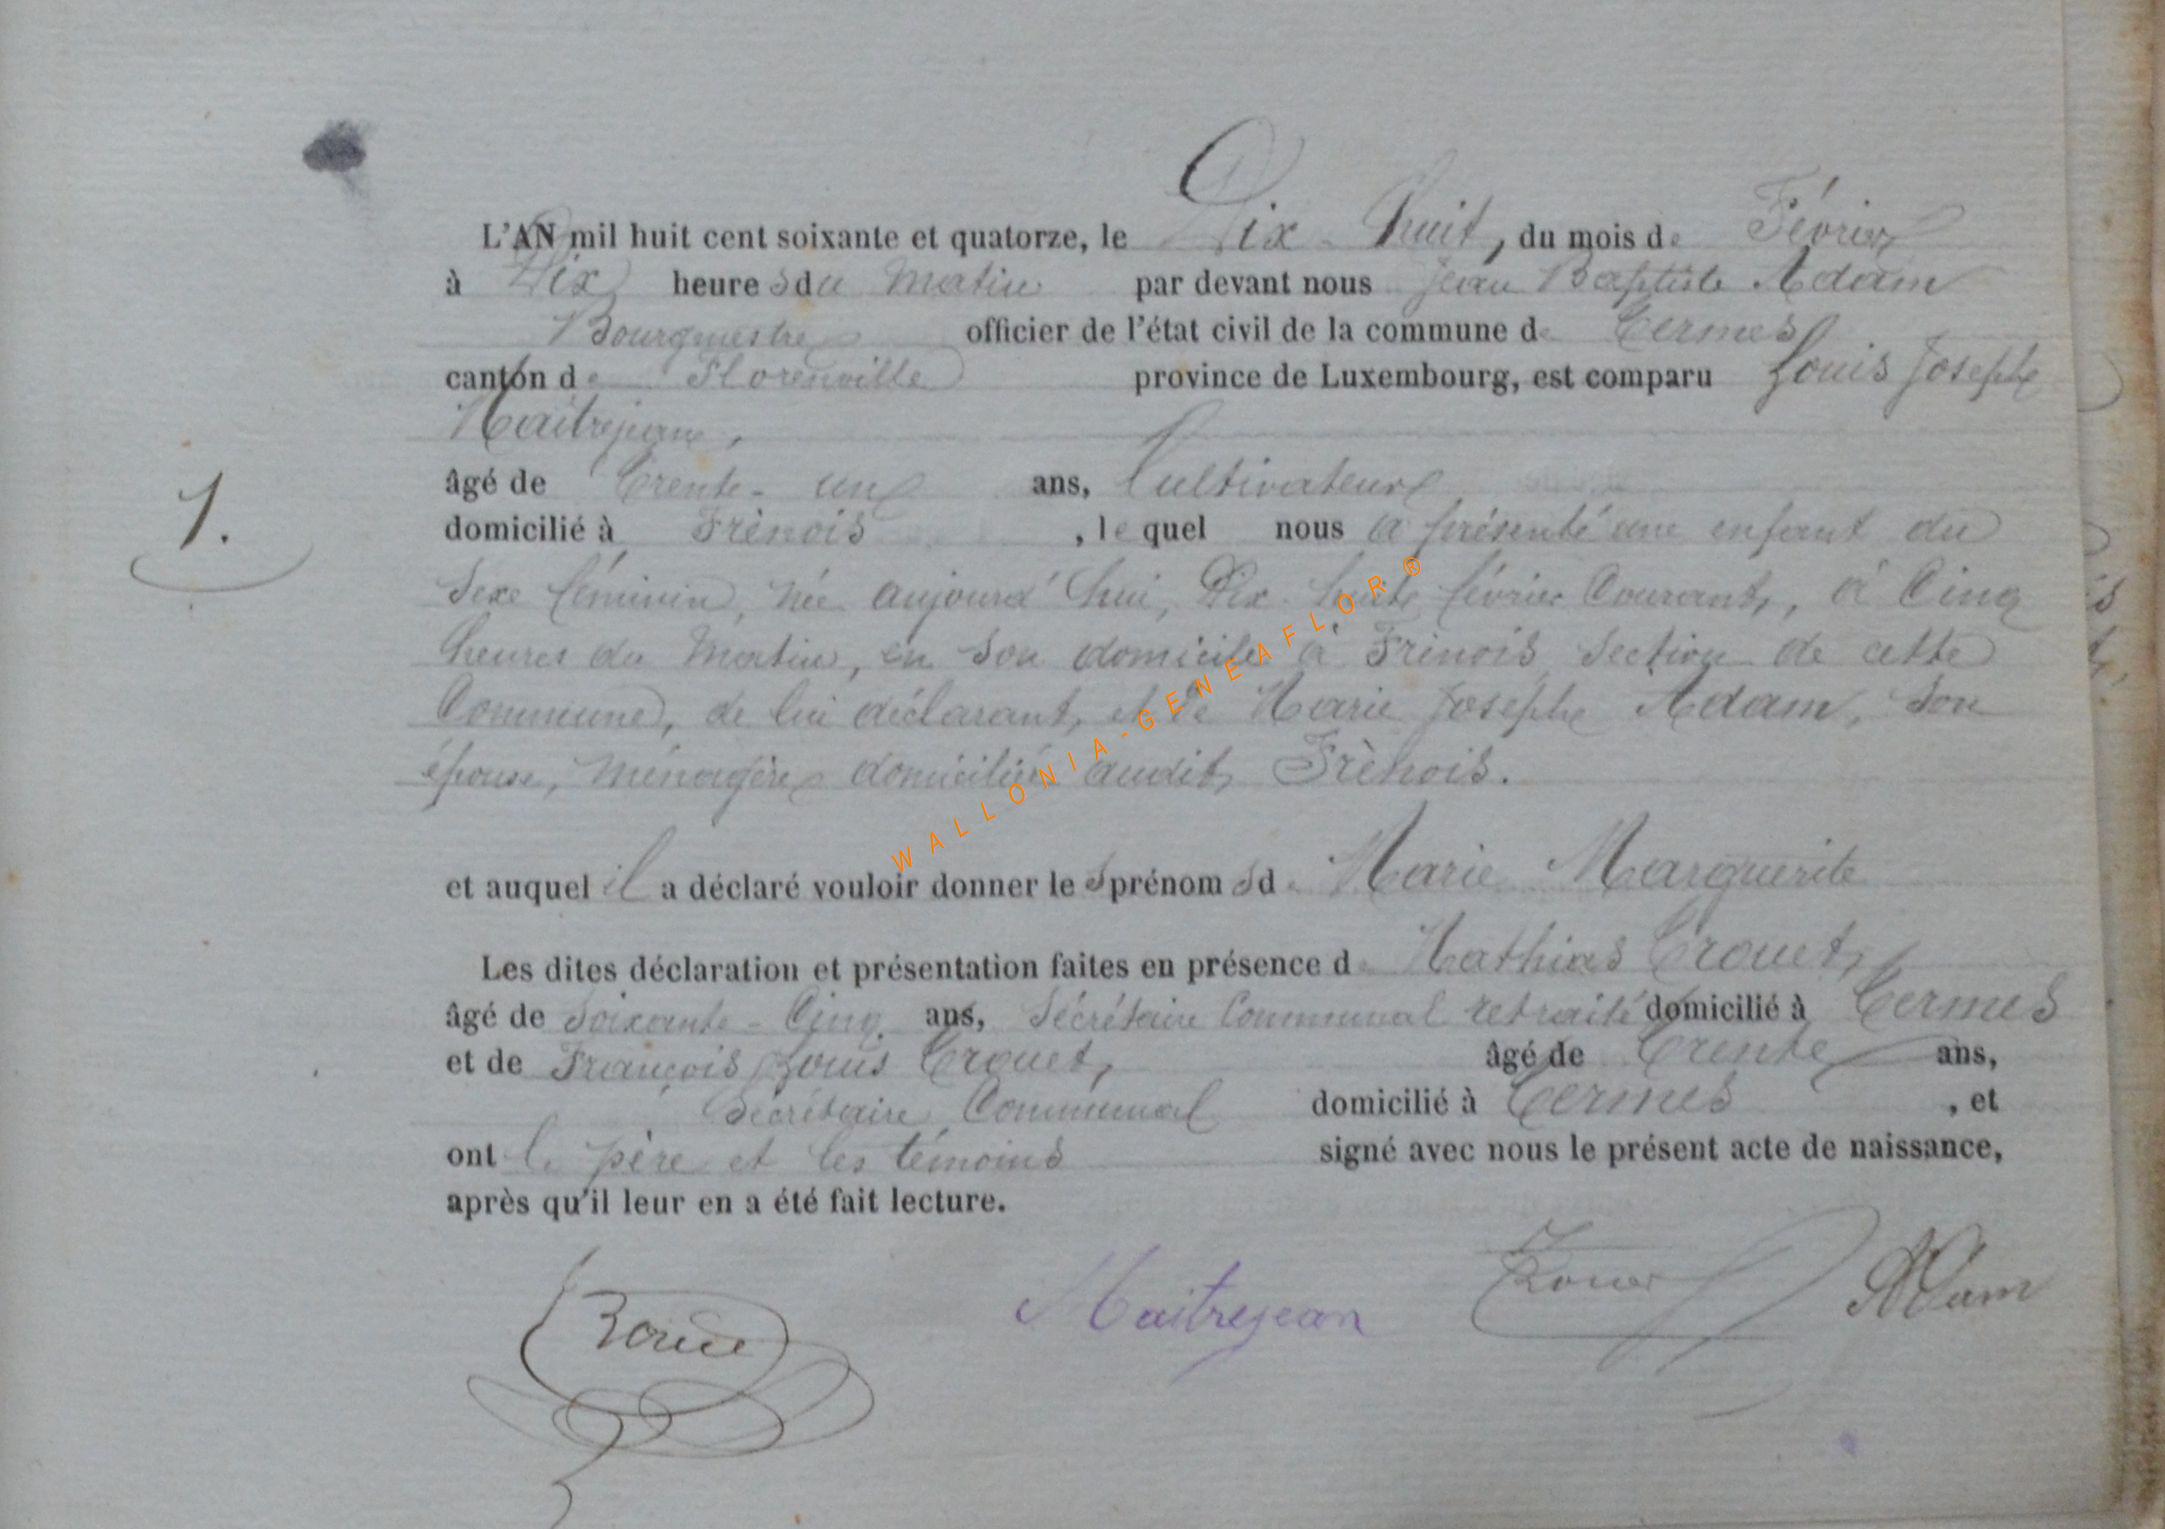 L'AN mil huit cent soixante et quatorze, le Dix-huit, du mois de Février
à Dix heures du Matin par devant nous Jean Baptiste Adam
Bourgmestre officier de l'état civil de la commune de Termes
canton de Florenville province de Luxembourg, est comparu Louis Joseph
Maitrejean,
âgé de Trente-un ans, Cultivateur
1.
domicilié à Frènois, lequel nous a présenté une enfant du
Sexe féminin, née aujourd'hui, Dix huit février Courant, à Cinq
heures du Matin, en son domicile à Frènois Section de cette
Commune, de lui déclarant, et de Marie Josephe Adam, son
épouse, Ménagère domiciliée audit Frènois.
et auquel il a déclaré vouloir donner les prénoms de Marie Marguerite
Les dites déclaration et présentation faites en présence de Mathias Trouet,
âgé de Soixante-Cinq ans, Sécrétaire Communal retraité domicilié à Termes
et de François Louis Trouet, âgé de Trente ans,
Sécrétaire Communal domicilié à Termes, et
ont le père et les témoins signé avec nous le présent acte de naissance,
après qu'il leur en a été fait lecture.
Maitrejean Adam
WALLONIA-GENEAFLOR®